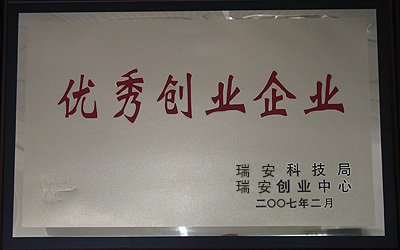 优秀创业企业
瑞安科技局
瑞安创业中心
二〇〇七年二月